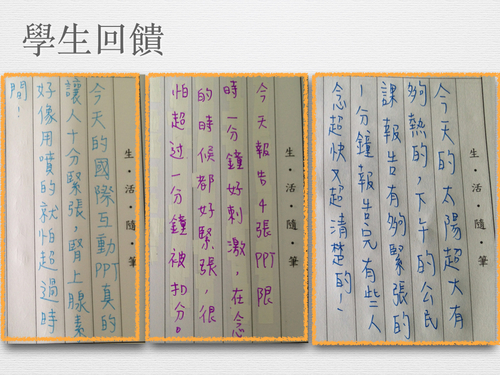 學生回饋
生・活・隨・筆
今天的國際互動PPT真的
讓人十分緊張,腎上腺素
好像用噴的就怕超過時
間!
生・活・隨・筆
今天報告4張PPT限
時一分鐘好刺激,在念
的時候都好緊張,很
怕超过一分鐘被扣分。
生・活・隨・筆
今天的太陽超大有
夠熱的,下午的公民
課報告有夠緊張的
1分鐘報告完有些人
念超快又超清楚的!